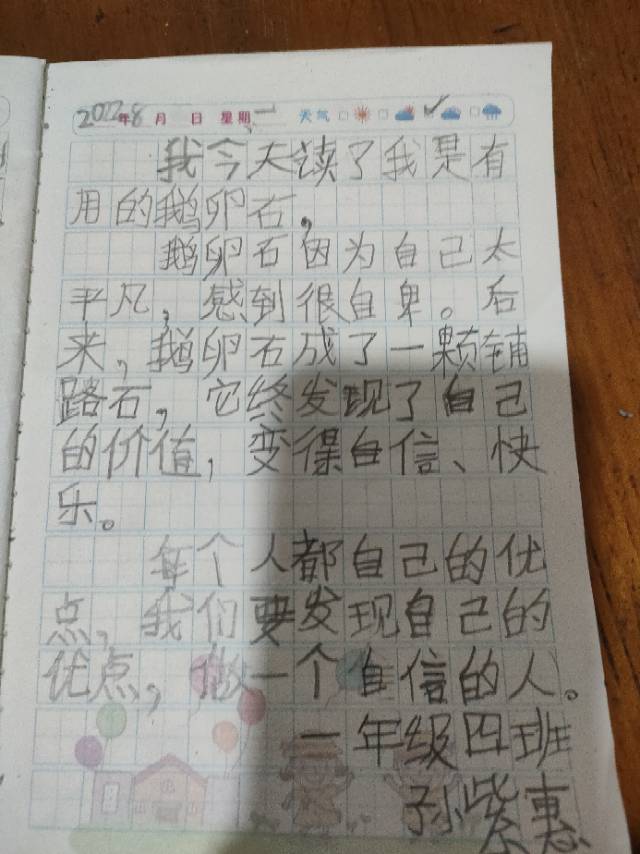 2022年8月 日 星期一 天气
我今天读了我是有
用的鹅卵石，
鹅卵石因为自己太
平凡，感到很自卑。后
来，鹅卵石成了一颗铺
路石，它终发现了自己
的价值，变得自信、快
乐。
每个人都自己的优
点，我们要发现自己的
优点，做一个自信的人。
一年级四班
孙紫惠